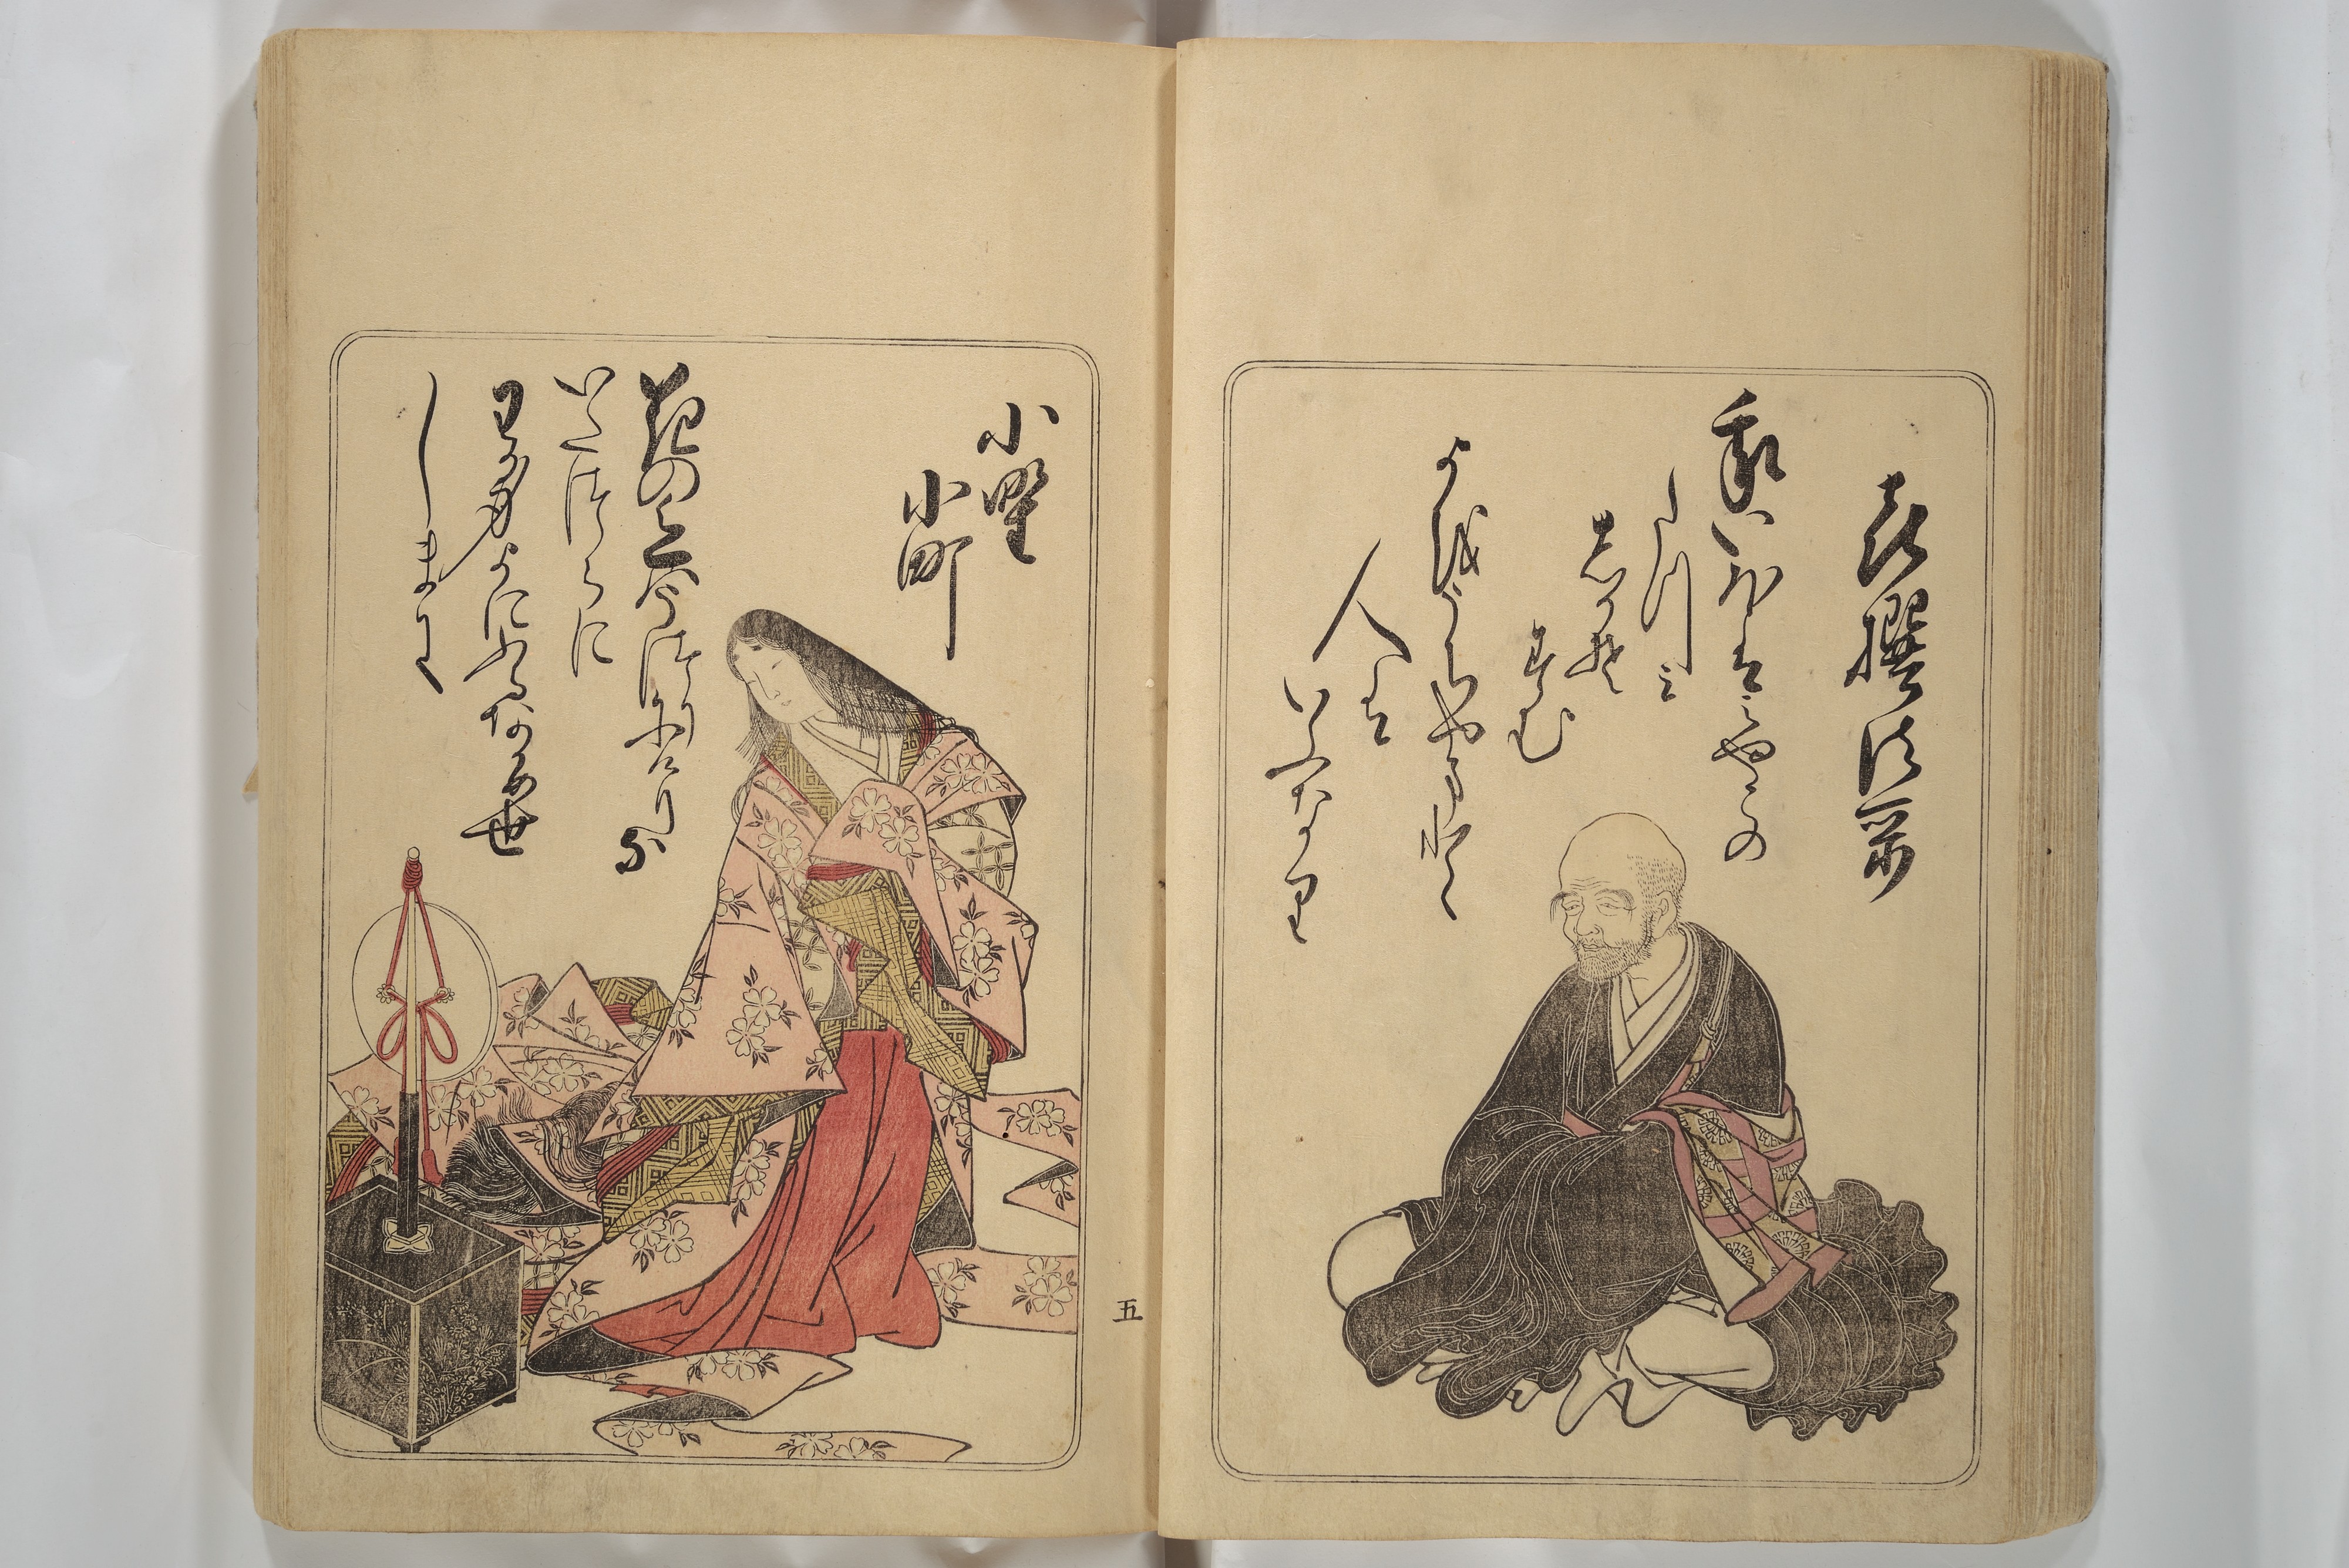 喜撰法師
我いほはみやこの
たつみ
志かそ
すむ
よをうちやまと
人は
いふなり
小野
小町
花の色はうつりにけりな
いたつらに
わか身よにふるなかめ世
しまに
五